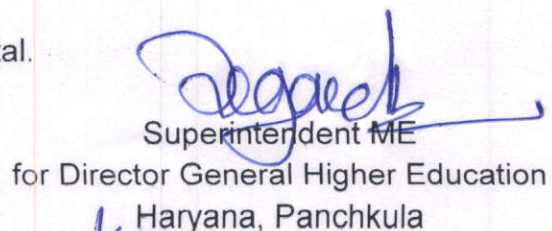 tal.
Superintendent ME
for Director General Higher Education
Haryana, Panchkula